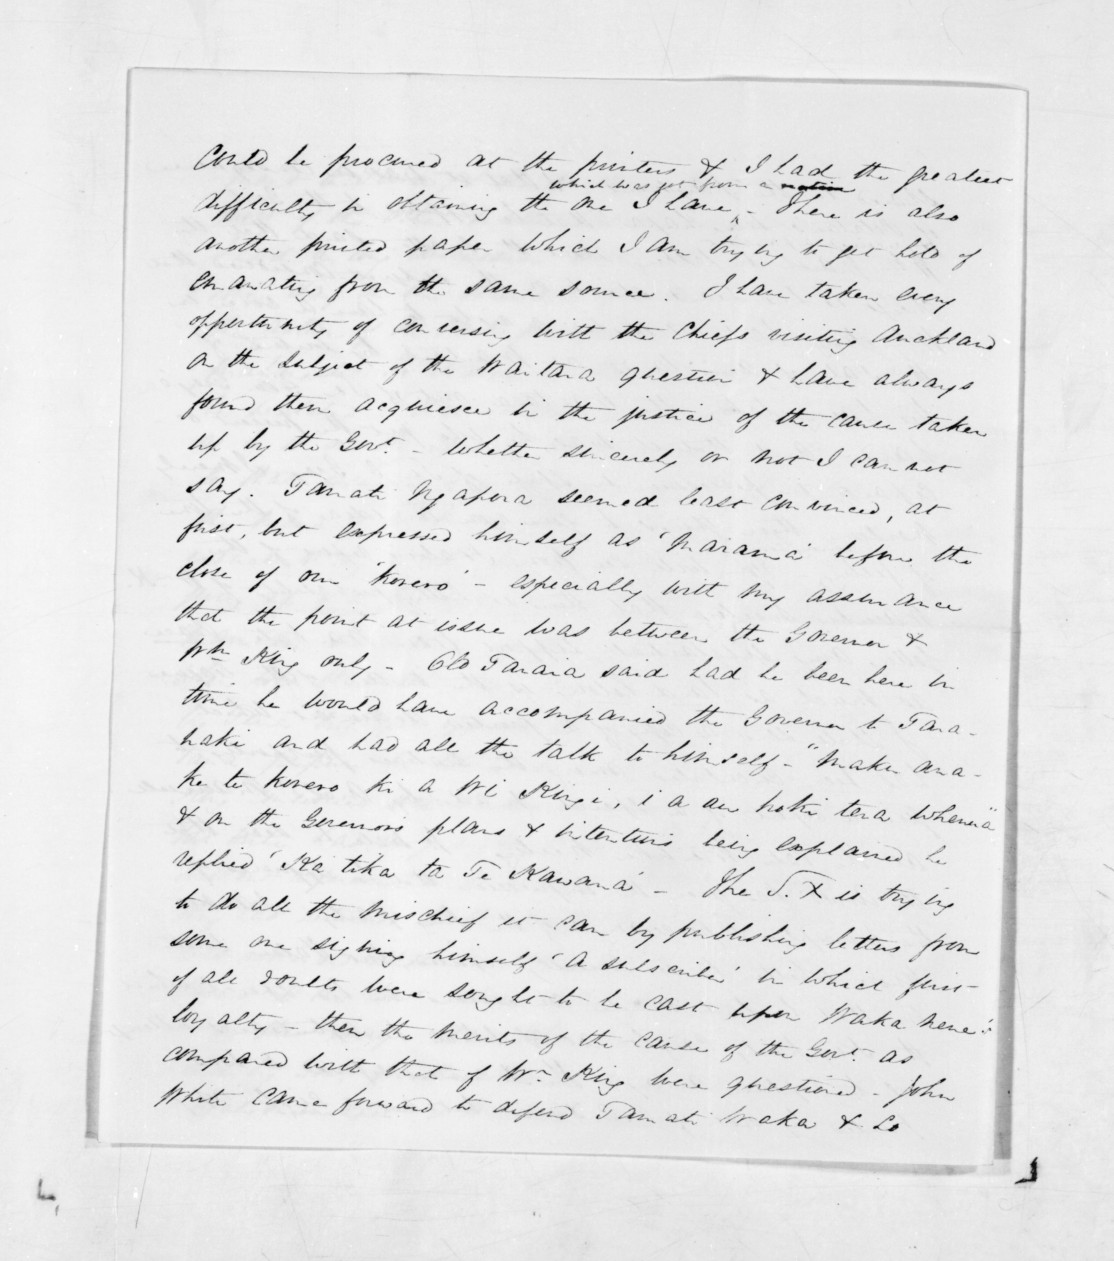 could be procured at the printers & I had the greatest
which was got from a native
difficulty in obtaining the one I have - There is also
another printed paper which I am trying to get hold of
emanating from the same source. I have taken every
opportunity of conversing with the Chiefs visiting Auckland
on the subject of the Waitara question & have always
found them acquiesce in the justice of the cause taken
up by the Govt. - whether sincerely or not I can not
say. Tamati Ngapora seemed least convinced, at
first, but expressed himself as 'Marama' before the
close of our 'korero' - especially with my assurance
that the point at issue was between the Governor &
Wm King only - Old Taraia said had he been here in
time he would have accompanied the Governor to Tara-
naki and had all the talk to himself - "Maku ana-
ke te korero ki a Wi Kingi, i a au hoki tera whenua"
& on the Governor's plans & intentions being explained he
replied 'Ka tika ta Te Kawana' - The S. X is trying
to do all the mischief it can by publishing letters from
some one signing himself 'A subscriber' in which first
of all doubts were sought to be cast upon Waka Nene's
loyalty - then the merits of the cause of the Govt. as
compared with that of Wm King were questioned - John
White came forward to defend Tamati Waka & so